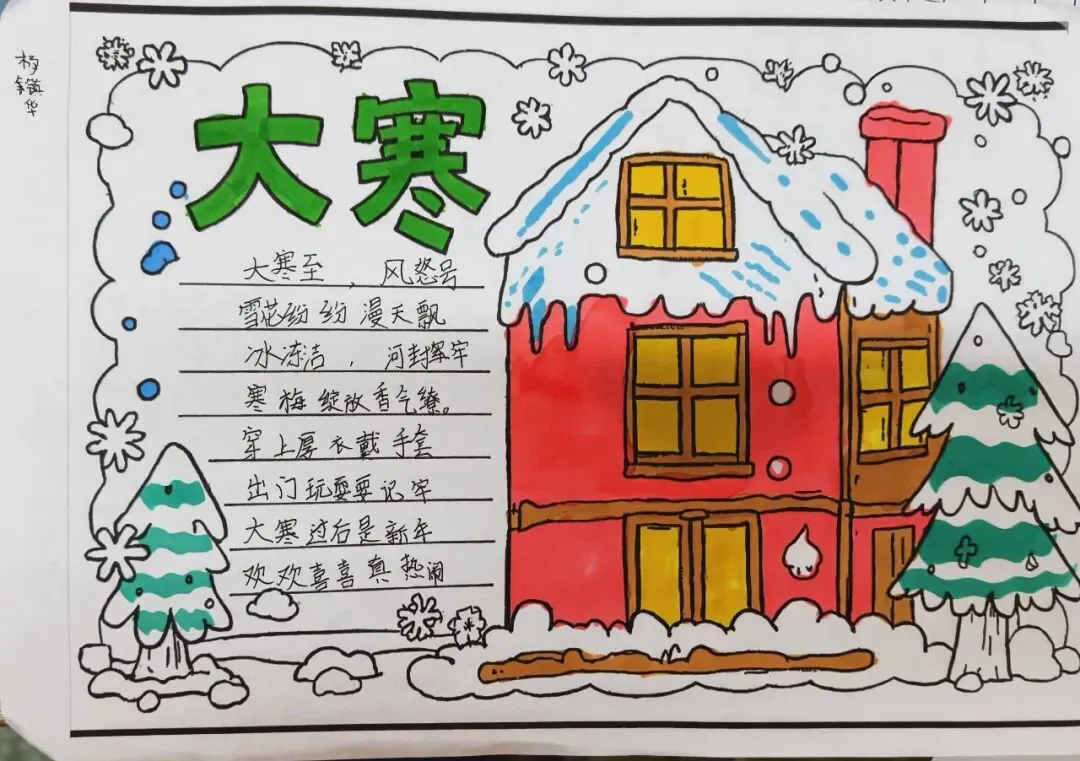 大寒
大寒至，风怒号
雪花纷纷漫天飘
冰冻洁，河封牢
寒梅绽放香气缭。
穿上厚衣戴手套
出门玩耍要记牢
大寒过后是新年
欢欢喜喜真热闹